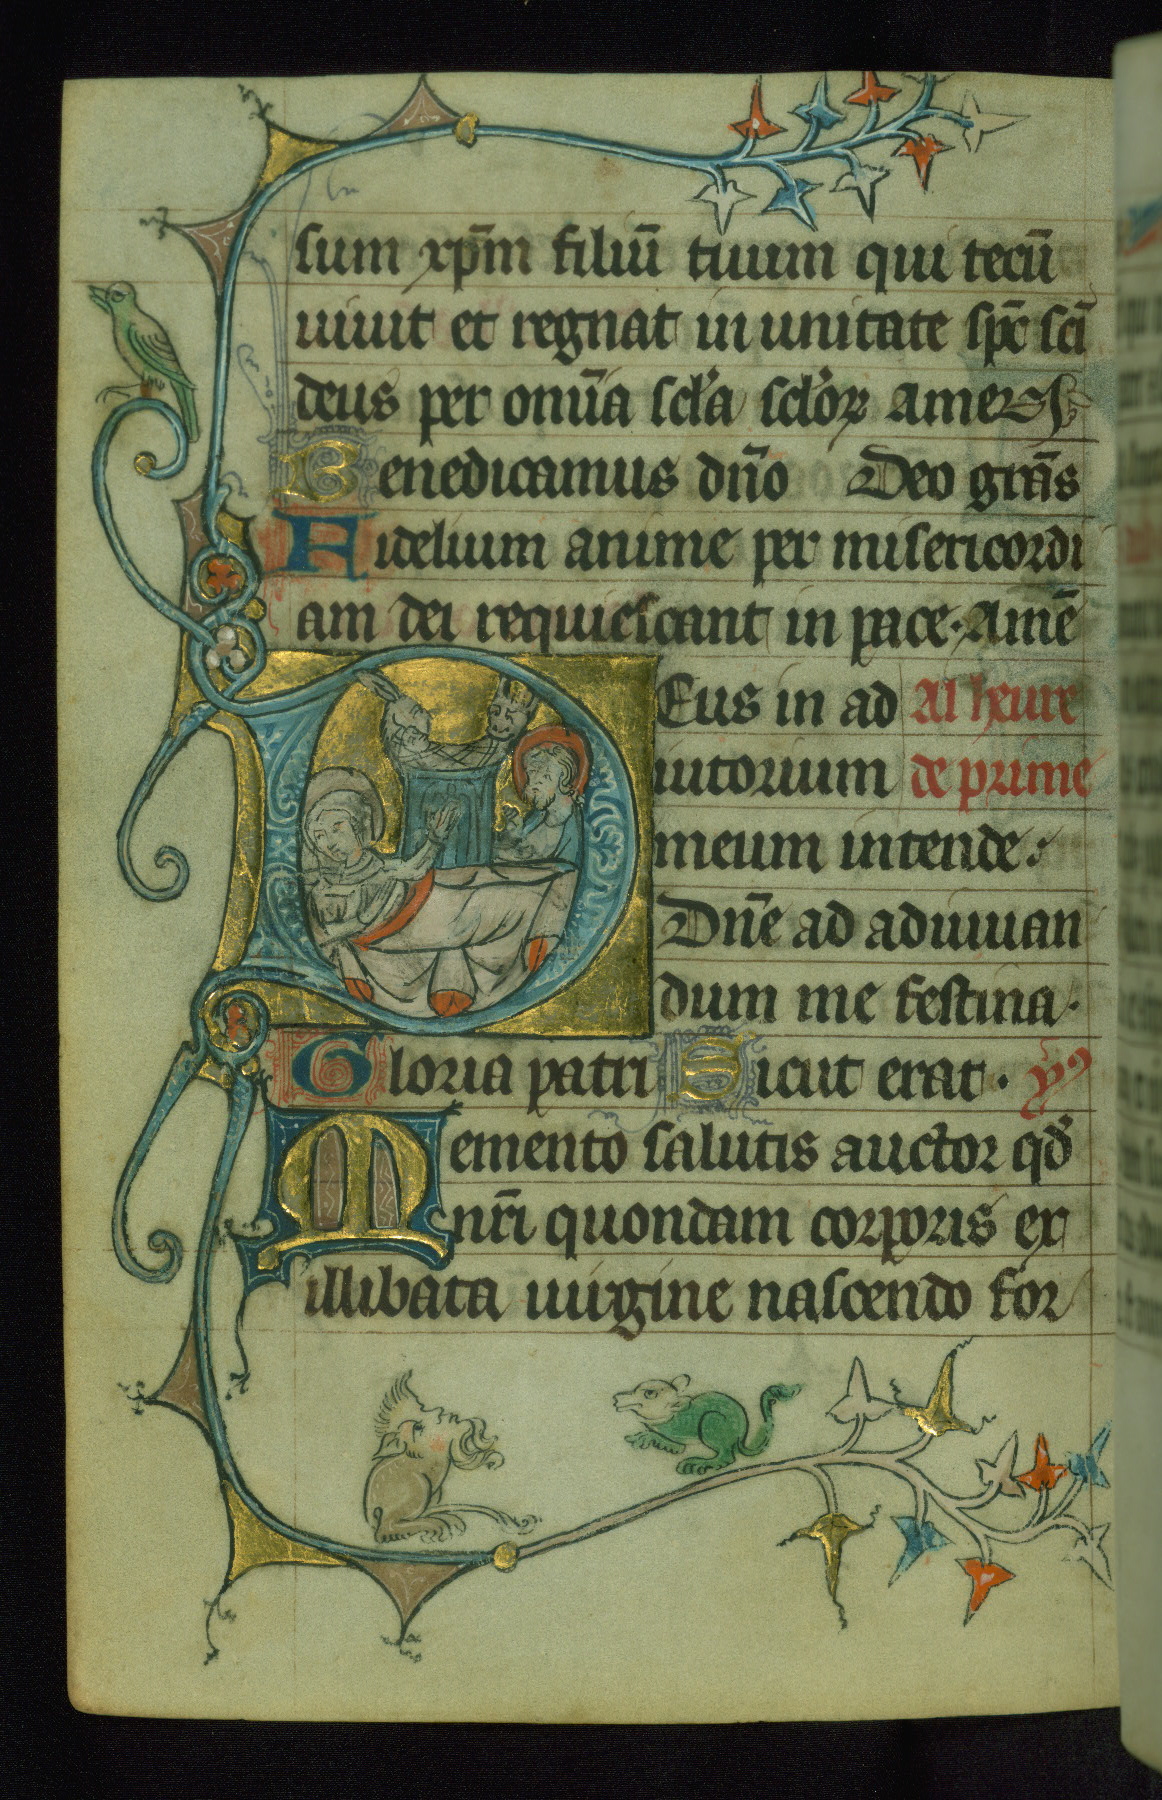 sum xp̄m filiū tuum qui tecū
uiuit et regnat in unitate sp̄c sc̄i
deus per om̄ia scl̄a scl̄oꝝ Amen
Benedicamus dn̄o Deo gr̄as
Fidelium anime per misericordi
am dei requiescant in pace. Amē
Deus in ad Al heure
iutorium de prime
meum intende.
Dn̄e ad adiuuan
dum me festina.
Gloria patri Sicut erat. ymꝰ
Memento salutis auctor qd̄
nr̄i quondam corporis ex
illibata uirgine nascendo for